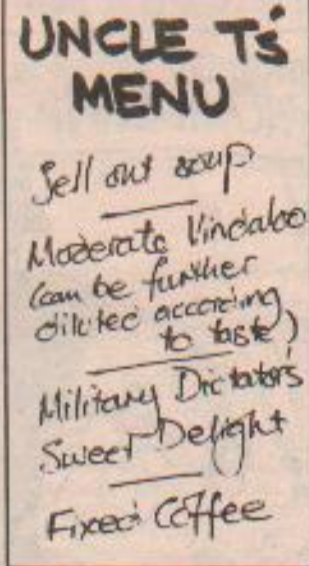 UNCLE T's
MENU
Sell out soup
Moderate Vindaloo
(can be further
diluted according
to taste)
Military Dictators
Sweet Delight
Fixed Coffee